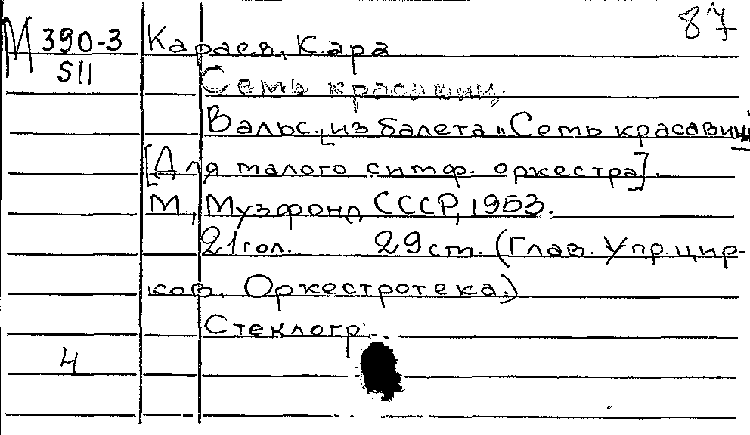 87
М 390-3 Караев, Кара
511
Семь красавиц.
Вальс, из балета „Семь красавиц"
[Для малого симф. оркестра].
М., Музфонд СССР, 1953.
21 гол. 29 ст. (Глав. Упр. цир-
ков. Оркестротека.)
Стеклогр.
4